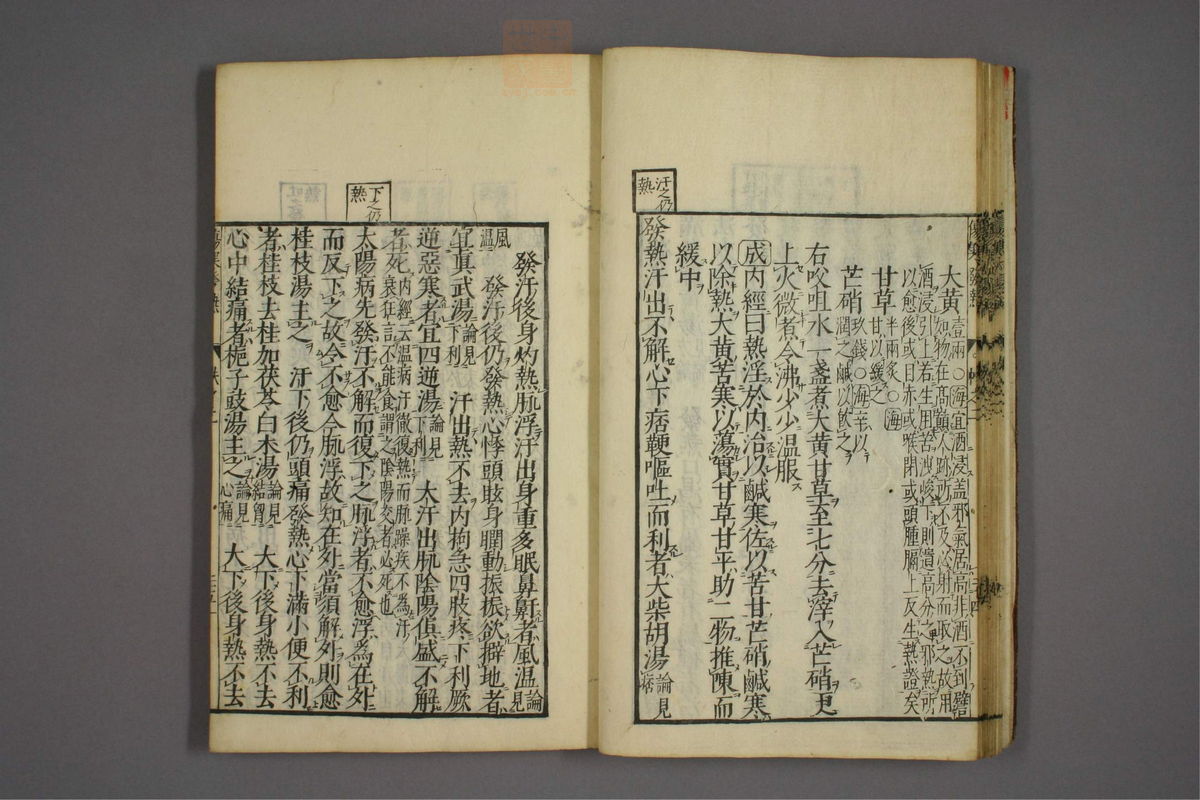 大黃壹兩○海宜酒浸盖邪氣居高非酒不到譬
如物在高巔人跡所不及必射而取之故用
酒浸引上若生用苦泄峻下則遺高分之邪熱所
以愈後或目赤或喉閉或頭腫膈上反生熱證矣
甘草半兩炙○海
甘以緩之
芒硝玖錢○海辛以
潤之鹹以耎之
右㕮咀水二盞煮大黃甘草至七分去滓入芒硝更
上火微煮令沸少少溫服
成內經曰熱淫於內治以鹹寒佐以苦甘芒硝鹹寒
以除熱大黃苦寒以蕩實甘草甘平助二物推陳而
緩中
汗之仍
熱
發熱汗出不解心下痞鞕嘔吐而利者大柴胡湯論見
痞
發汗後身灼熱脉浮汗出身重多眠鼻鼾者風溫論見
風
溫
發汗後仍發熱心悸頭眩身瞤動振振欲擗地者
宜真武湯論見
下利
汗出熱不去內拘急四肢疼下利厥
逆惡寒者宜四逆湯論見
下利
大汗出脉陰陽俱盛不解
者死內經云溫病汗輒復熱而脉躁疾不為汗
衰狂言不能食謂之陰陽交者必死也
下之仍
熱
太陽病先發汗不解而復下之脉浮者不愈浮為在外
而反下之故令不愈今脉浮故知在外當須解外則愈
桂枝湯主之 汗下後仍頭痛發熱心下滿小便不利
者桂枝去桂加茯苓白朮湯論見
結胸
大下後身熱不去
心中結痛者梔子豉湯主之論見
心痛
大下後身熱不去